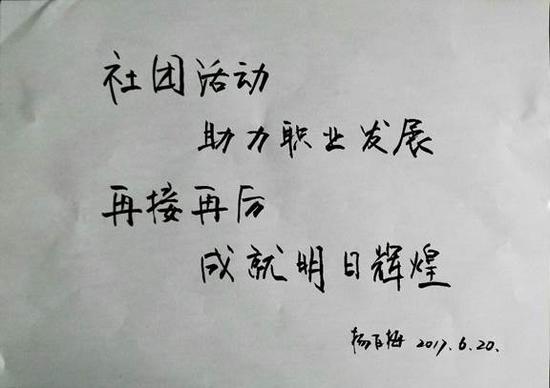 社团活动
助力职业发展
再接再厉
成就明日辉煌
杨百梅 2017.6.20.